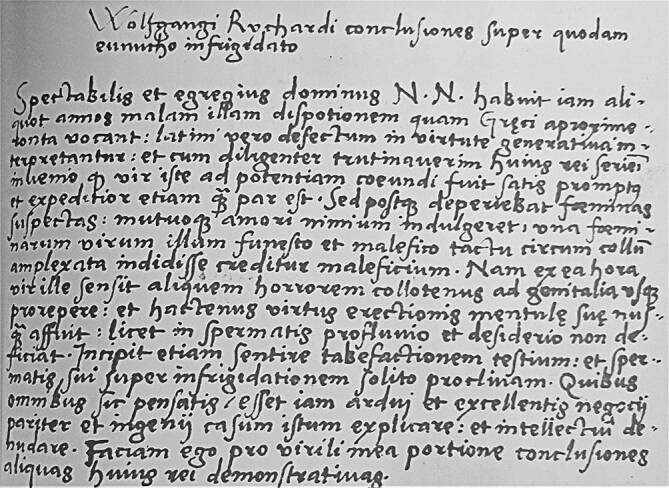 Wolfgangi Rychardi conclusiones super quodam
eunucho infrigidato
Spectabilis et egregius dominus N. N. habuit iam ali-
quot annos malam illam dispotionem quam Gręci aproxime-
tonta vocant: latini vero defectum in virtute generativa in-
terpretantur: et cum diligenter trutinaverim huius rei seriē
invenio ꝙ vir iste ad potentiam coeundi fuit satis promptꝯ
et expeditior etiam q̄ꝫ par est. Sed postꝙ deperiebat fœminas
suspectas: mutuoꝙ amori nimium indulgeret, una fœmi-
narum virum illum funesto et malefico tactu circum collū
amplexata indidisse creditur maleficium. Nam ex ea hora
vir ille sensit aliquem horrorem collotenus ad genitalia usꝙ
prorepere: et hactenus virtus erectionis mentulę suę nus-
q̄ꝫ affuit: licet in spermatis profluvio et desiderio non de-
ficiat. Incipit etiam sentire tabefactionem testium: et sper-
matis sui super infrigidationem solito procliviam. Quibus
omnibus sic pensatis, esset iam ardui et excellentis negocij
pariter et ingenij casum istum explicare: et intellectui de-
nudare. Faciam ego pro virili mea portione conclusiones
aliquas huius rei demonstrativas.